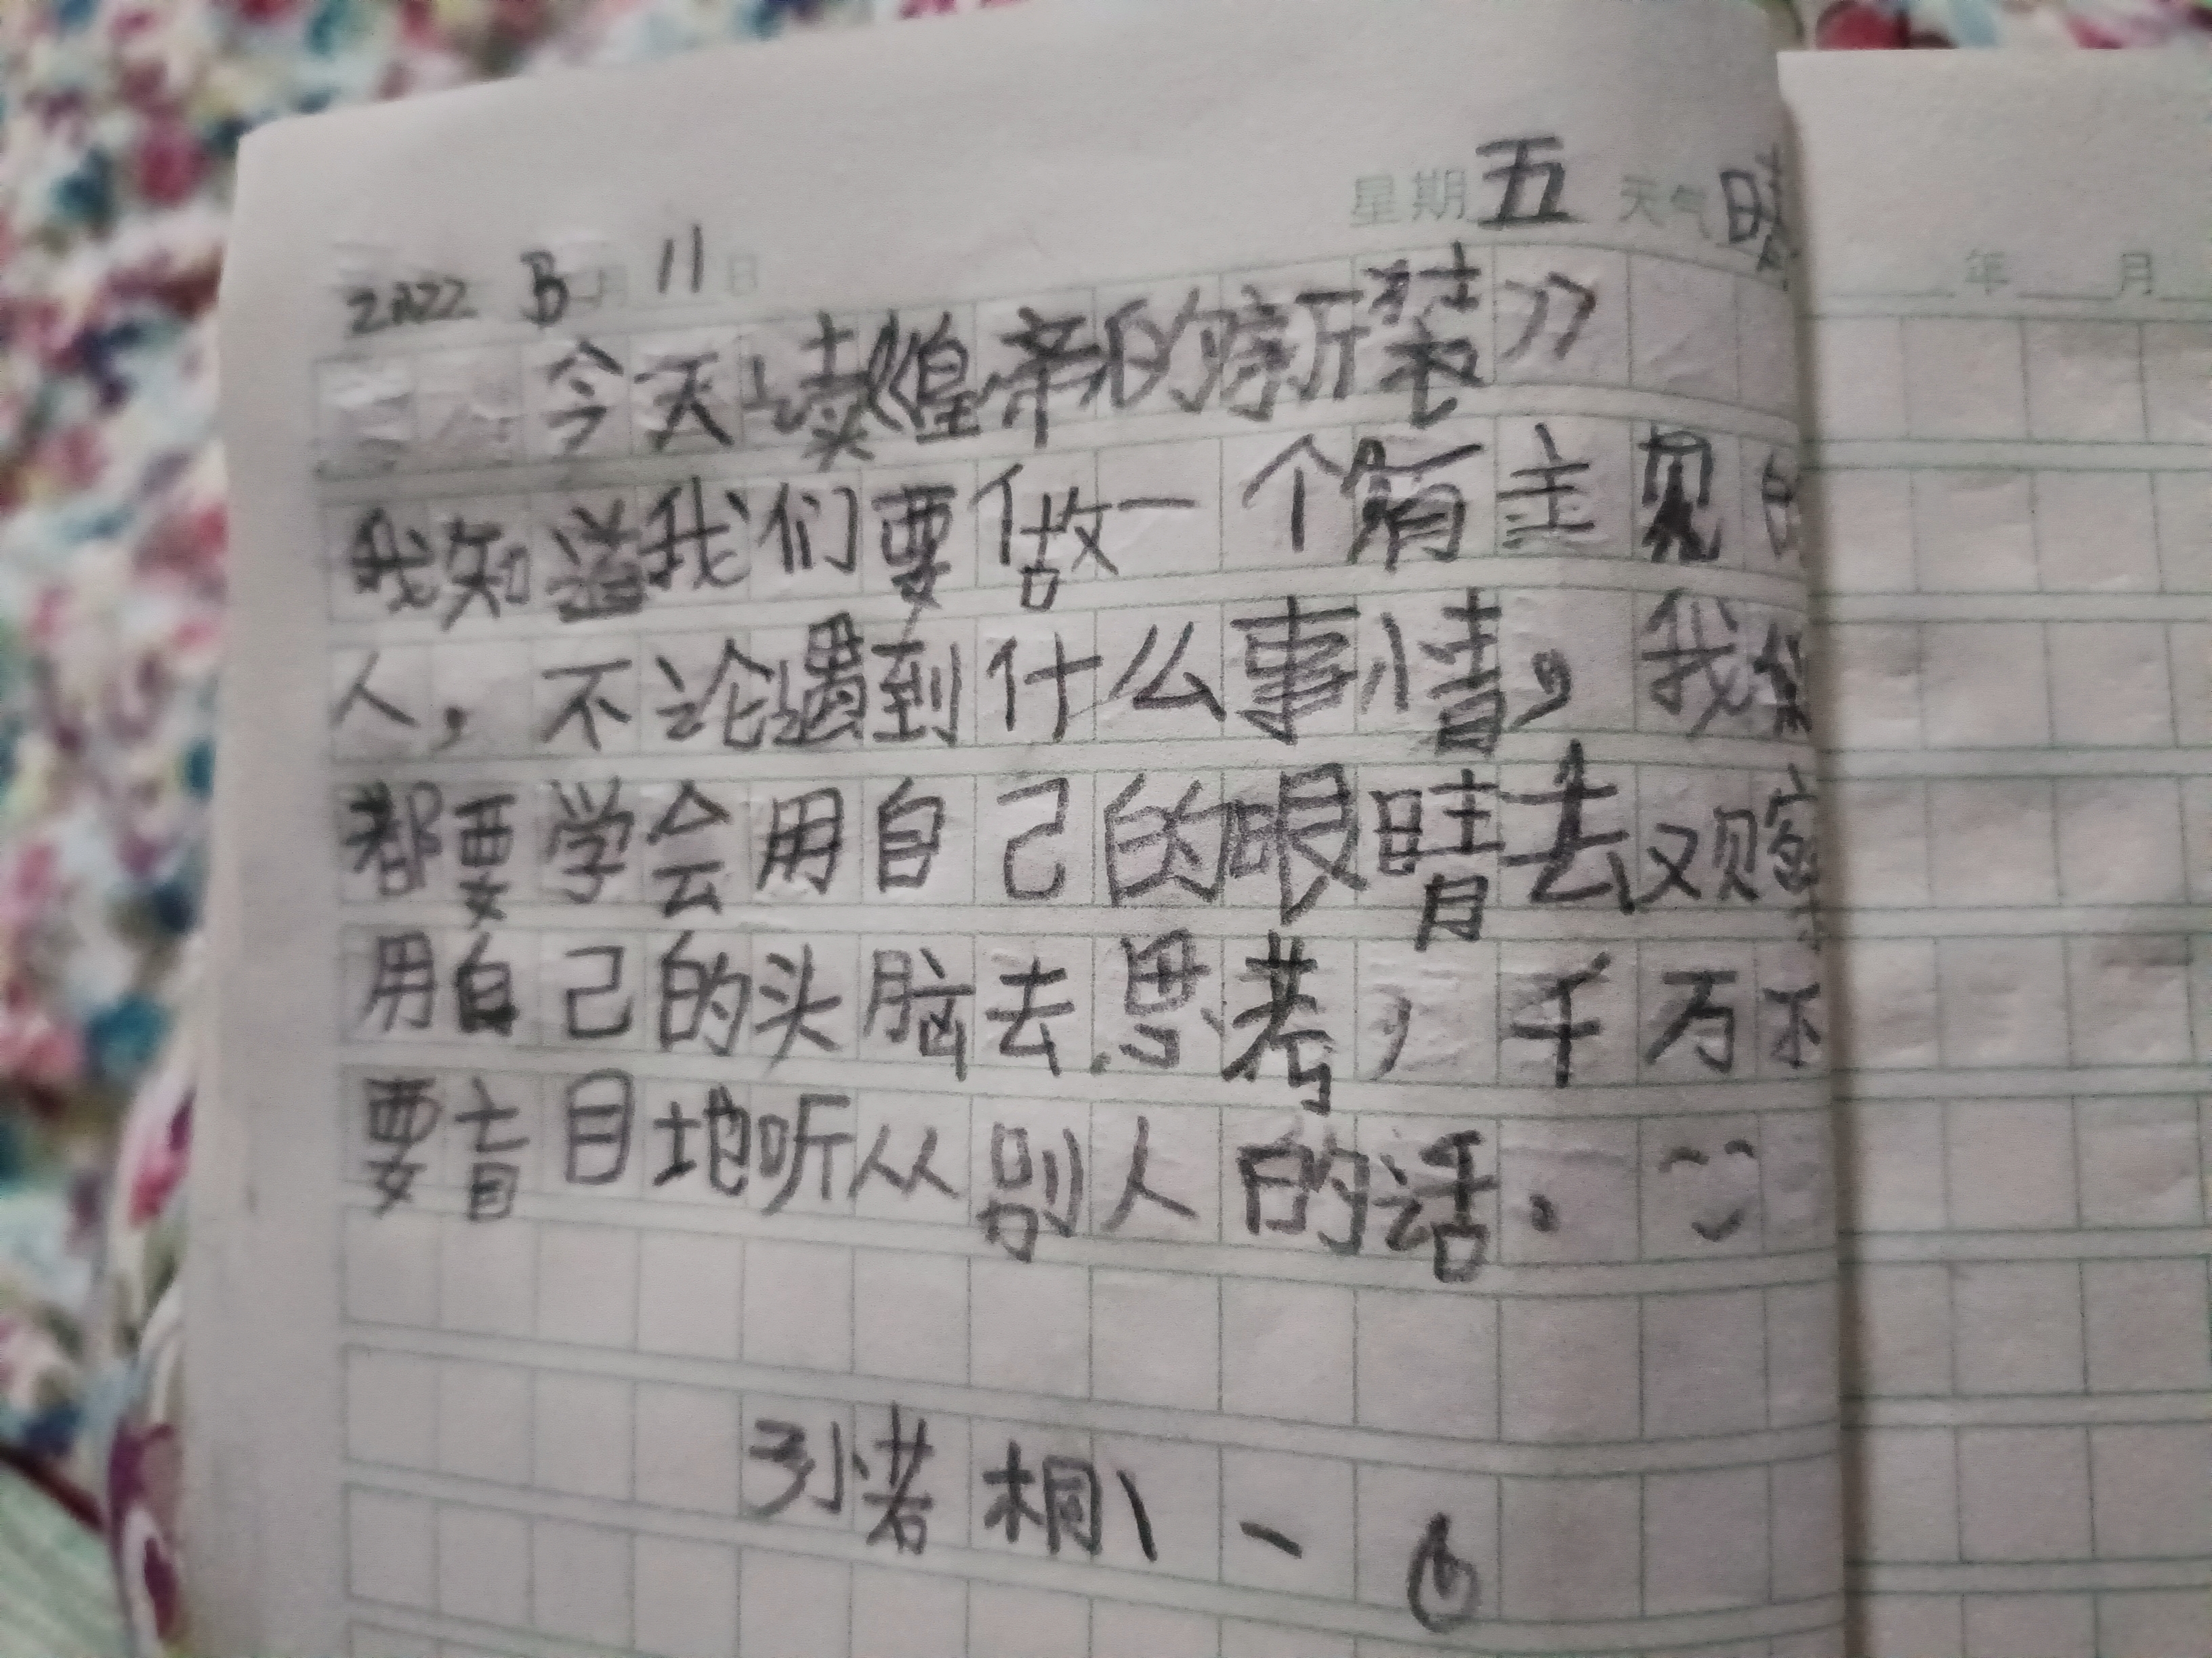 星期五 天气晴
2022 月 11日
今天读《皇帝的新装》
我知道我们要做一个有主见的
人，不论遇到什么事情，我们
都要学会用自己的眼睛去观察
用自己的头脑去思考，千万不
要盲目地听从别人的话。
孙若桐
年 月